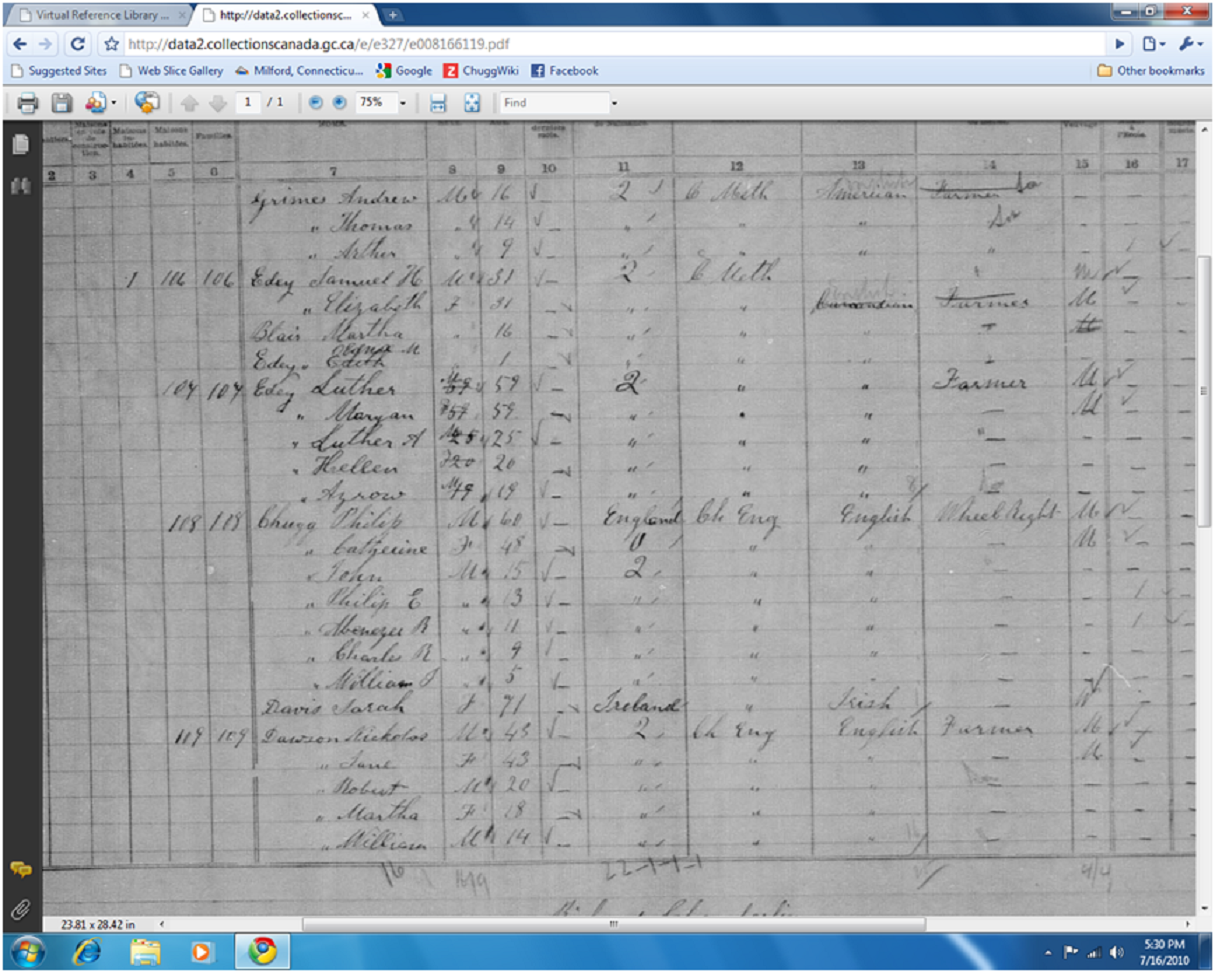 Virtual Reference Library ... × http://data2.collectionsc... ×
http://data2.collectionscanada.gc.ca/e/e327/e008166119.pdf
Suggested Sites Web Slice Gallery Milford, Connecticu... Google ChuggWiki Facebook Other bookmarks
1 / 1 75% Find
Maisons habitées. Familles.
2 3 4 5 6 7 8 9 10 11 12 13 14 15 16 17
Grimes Andrew M 16 2 C Meth American Farmer So
" Thomas " 14 " " " So
" Arther " 9 " " " " 1
1 106 106 Edey Samuel H M 31 2 C Meth M
" Elizabeth F 31 " " Canadian Farmer M
Blair Martha " 16 " "
Edey " Edith M 1 " " "
107 107 Edey Luther M 59 2 " " Farmer M
" Maryan F 59 " " " M
" Luther A M 25 " " " "
" Hellen F 20 " " "
" Azrow M 19 " " "
108 108 Chugg Philip M 60 England Ch Eng English Wheel Right M
" Catherine F 48 " " M
" John M 15 2 " "
" Philip E " 13 " " " 1
" Abenezer R " 11 " " " 1
" Charles R " 9 " " "
" William J " 5 " " "
Davis Sarah F 71 Ireland " Irish W
109 109 Dawson Nicholos M 43 2 Ch Eng English Farmer M
" Jane F 43 " " " M
" Robert M 20 " " "
" Martha F 18 " " "
" William M 14 " " "
16 22-1-1-1 4/4
23.81 x 28.42 in
5:30 PM
7/16/2010